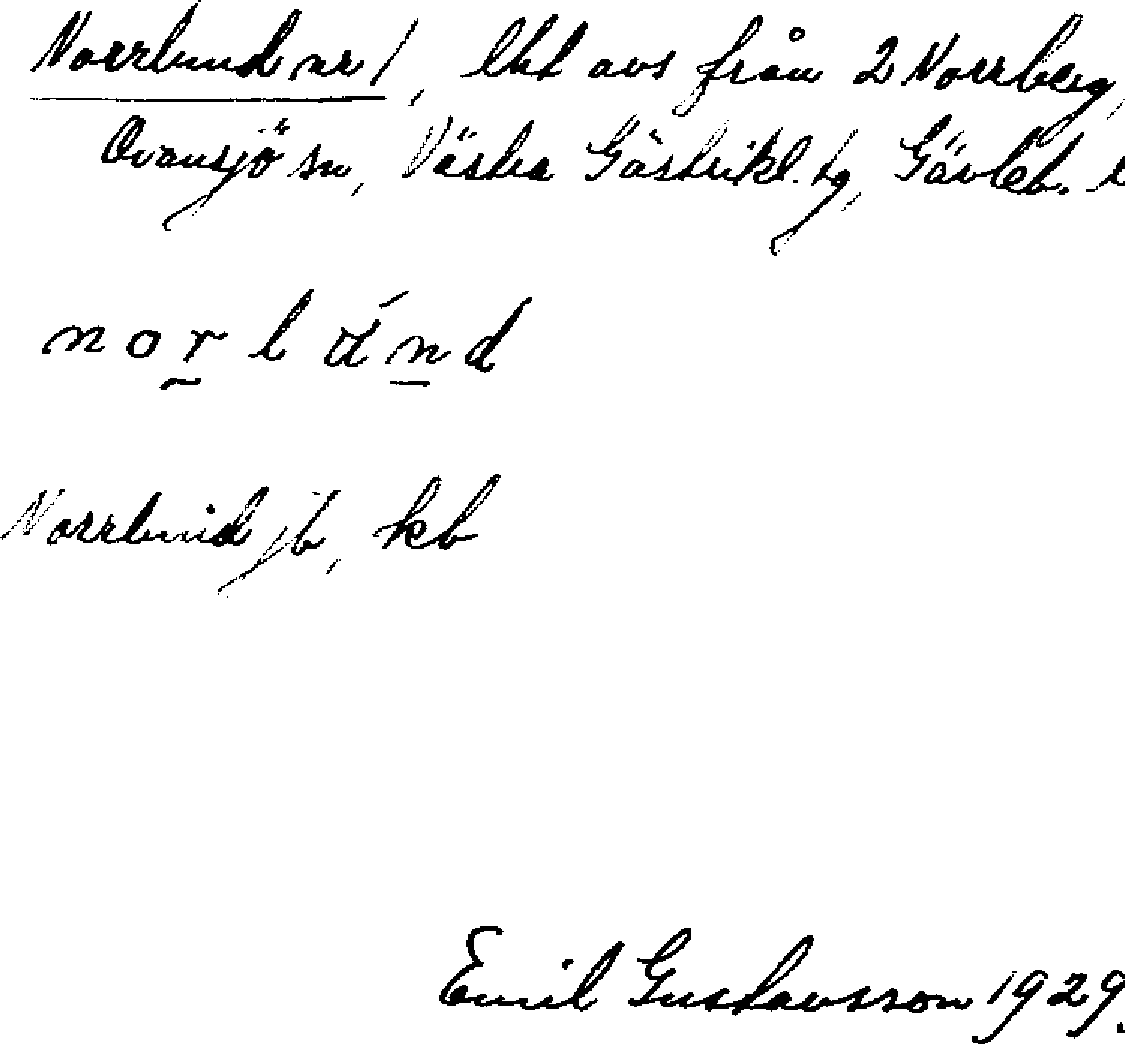 Norrlund nr 1, lht avs från 2 Norrberg,
Ovansjö sn, Västra Gästrikl. tg, Gävleb. l
Norrlund jb, kb
Emil Gustavsson 1929.